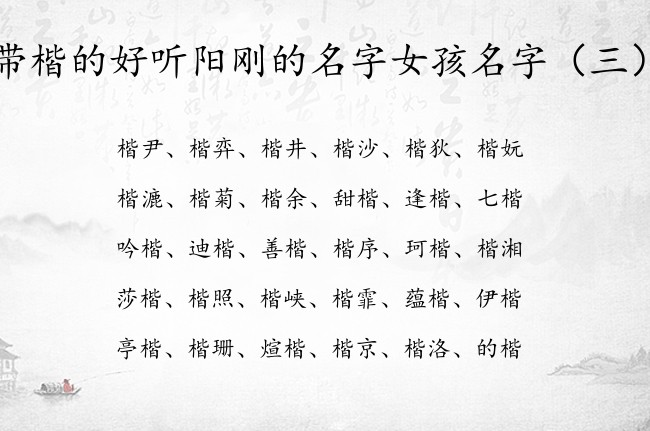 带楷的好听阳刚的名字女孩名字（三）
楷尹、楷弈、楷井、楷沙、楷狄、楷妧
楷漉、楷菊、楷余、甜楷、逢楷、七楷
吟楷、迪楷、善楷、楷序、珂楷、楷湘
莎楷、楷照、楷峡、楷霏、蕴楷、伊楷
亭楷、楷珊、煊楷、楷京、楷洛、的楷